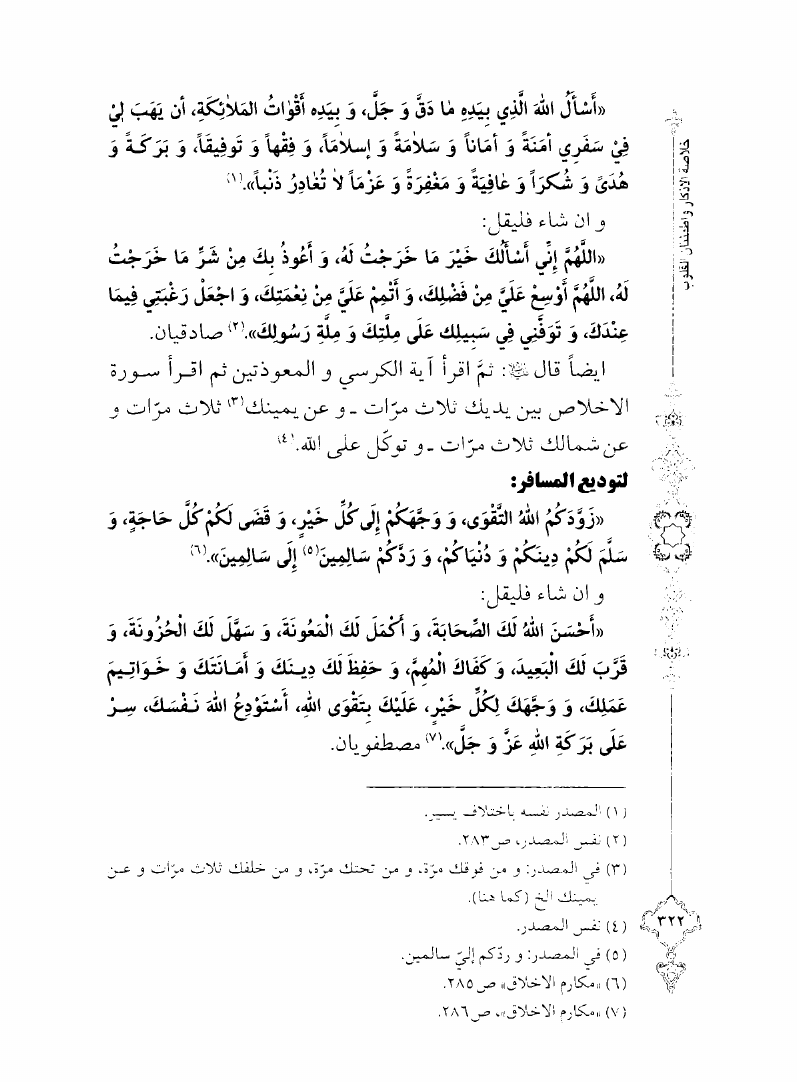 «أَسْأَلُ اللهَ الَّذِي بِيَدِهِ مٰا دَقَّ وَ جَلَّ، وَ بِيَدِه أَقْوٰاتُ المَلاٰئِكَةِ، أن يَهَبَ لِيْ
فِيْ سَفَرِي أمَنَةً وَ أمَاناً وَ سَلاٰمَةً وَ إسلاٰمَاً، وَ فِقْهاً وَ تَوفِيقَاً، وَ بَرَكَةً وَ
هُدَىً وَ شُكرَاً وَ عٰافِيَةً وَ مَغْفِرَةً وَ عَزْمَاً لاٰ تُغٰادِرُ ذَنْباً».(١)
و ان شاء فليقل:
«اللَّهُمَّ إِنِّي أَسْأَلُكَ خَيْرَ مَا خَرَجْتُ لَهُ، وَ أَعُوذُ بِكَ مِنْ شَرِّ مَا خَرَجْتُ
لَهُ، اللَّهُمَّ أَوْسِعْ عَلَيَّ مِنْ فَضْلِكَ، وَ أَتْمِمْ عَلَيَّ مِنْ نِعْمَتِكَ، وَ اجْعَلْ رَغْبَتِي فِيمَا
عِنْدَكَ، وَ تَوَفَّنِي فِي سَبِيلِك عَلَى مِلَّتِكَ وَ مِلَّةِ رَسُولِكَ».(٢) صادقيان.
ايضاً قال ﷺ: ثمَّ اقرأ آية الكرسي و المعوذتين ثم اقرأ سورة
الاخلاص بين يديك ثلاث مرّات ـ و عن يمينك(٣) ثلاث مرّات و
عن شمالك ثلاث مرّات ـ و توكّل على الله.(٤)
لتوديع المسافر:
«زَوَّدَكُمُ اللهُ التَّقْوَى، وَ وَجَّهَكُمْ إِلَى كُلِّ خَيْرٍ، وَ قَضَى لَكُمْ كُلَّ حَاجَةٍ، وَ
سَلَّمَ لَكُمْ دِينَكُمْ وَ دُنْيَاكُمْ، وَ رَدَّكُمْ سَالِمِينَ(٥) إِلَى سَالِمِينَ».(٦)
و ان شاء فليقل:
«أَحْسَنَ اللهُ لَكَ الصِّحَابَةَ، وَ أَكْمَلَ لَكَ الْمَعُونَةَ، وَ سَهَّلَ لَكَ الْحُزُونَةَ، وَ
قَرَّبَ لَكَ الْبَعِيدَ، وَ كَفَاكَ الْمُهِمَّ، وَ حَفِظَ لَكَ دِينَكَ وَ أَمَانَتَكَ وَ خَوَاتِيمَ
عَمَلِكَ، وَ وَجَّهَكَ لِكُلِّ خَيْرٍ، عَلَيْكَ بِتَقْوَى اللهِ، أَسْتَوْدِعُ اللهَ نَفْسَكَ، سِرْ
عَلَى بَرَكَةِ اللهِ عَزَّ وَ جَلَّ».(٧) مصطفويان.
(١) المصدر نفسه باختلاف يسير.
(٢) نفس المصدر، ص٢٨٣.
(٣) في المصدر: و من فوقك مرّة، و من تحتك مرّة، و من خلفك ثلاث مرّات و عن
يمينك الخ (كما هنا).
(٤) نفس المصدر.
(٥) في المصدر: و ردّكم إليّ سالمين.
(٦) «مكارم الاخلاق» ص٢٨٥.
(٧) «مكارم الاخلاق»، ص٢٨٦.
خلاصة الاذكار واطمئنان القلوب
٣٢٢